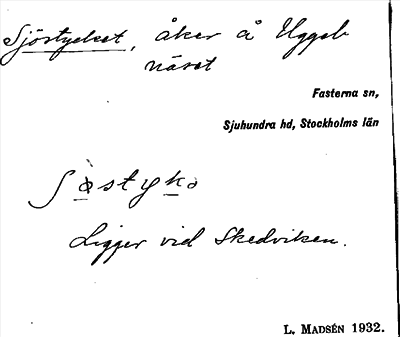 Sjöstycket, åker å Uggel-
näset
Fasterna sn,
Sjuhundra hd, Stockholms län
Ligger vid Skedviken.
L. MADSÉN 1932.